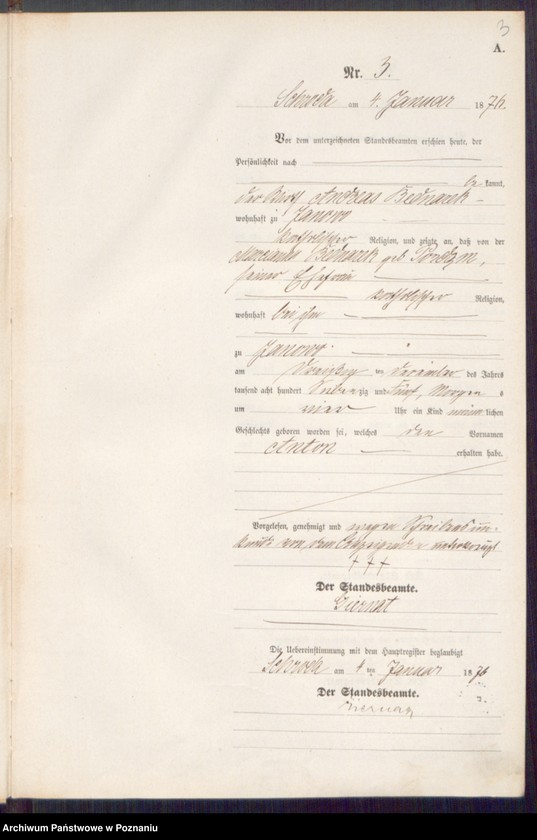 3
A.
Nr. 3.
Schroda am 4. Januar 1876.
Vor dem unterzeichneten Standesbeamten erschien heute, der
Persönlichkeit nach
be kannt,
der Andreas Bednarek
wohnhaft zu Janowo
katholischer Religion, und zeigte an, daß von der
Marianna Bednarek geb.
seiner Ehefrau
katholischer Religion,
wohnhaft bei ihm
zu Janowo
am dreißig ten Dezember des Jahres
tausend acht hundert sieben zig und fünf, Morgens
um vier Uhr ein Kind männ lichen
Geschlechts geboren worden sei, welches den Vornamen
Anton erhalten habe.
Vorgelesen, genehmigt und wegen Schreibensun-
kunde von dem unterkreuzt
+ + +
Der Standesbeamte.
Die Uebereinstimmung mit dem Hauptregister beglaubigt
Schroda am 4 ten Januar 1876
Der Standesbeamte.
Archiwum Państwowe w Poznaniu